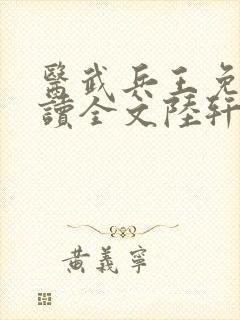 醫武兵王免
讀全文陸軒
黃義寧